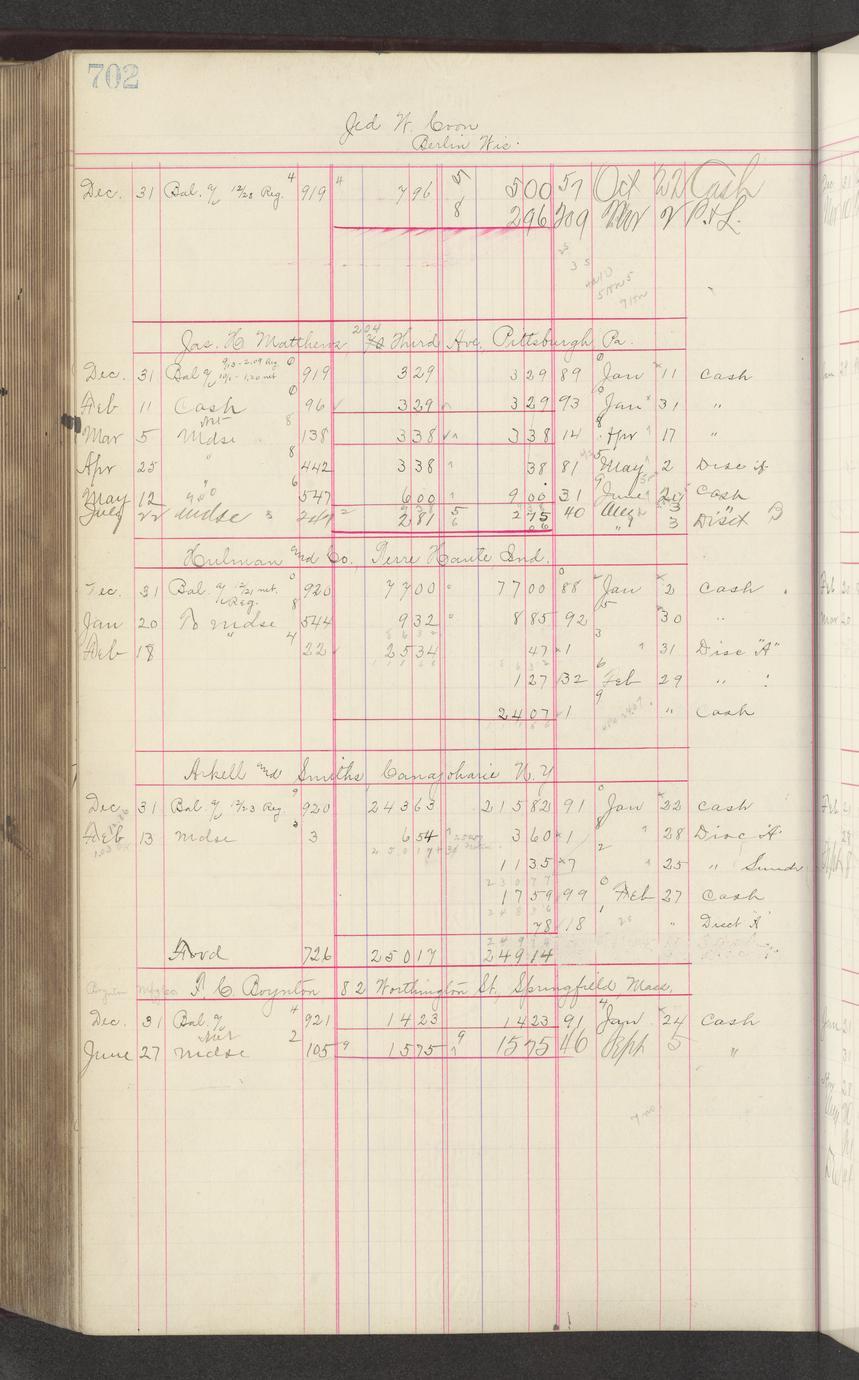 702
Jed W. Coon
Berlin Wis.
Dec. 31 Bal. 12/28 Reg. 4 919 4 796 5 500 57 Oct 22 Cash
8 296 209 Mar 2 P.&L.
Jas. H. Matthews 204 Third Ave. Pittsburgh Pa.
Dec. 31 Bal 0 919 329 329 89 0 Jan 11 Cash
Feb 11 Cash 0 96 329 329 93 Jan 31 "
Mar 5 Net Mdse 8 138 338 338 14 8 Apr 17 "
Apr 25 " 8 442 338 38 81 5 May 2 Disc
May 12 6 547 600 900 31 9 June 20 Cash
July 22 Mdse 281 5 275 40 Aug 3 "
6 6 " 3 Disct B
Hulman and Co. Terre Haute Ind.
Dec. 31 Bal. 12/21 net. Reg. 0 920 7700 7700 88 0 Jan 2 Cash
Jan 20 To Mdse 8 544 932 885 92 5 30 "
Feb 18 " 4 22 2534 47 1 3 " 31 Disc "A"
127 132 6 Feb 29 " "
2407 1 9 " Cash
Arkell and Smiths Canajoharie N.Y.
Dec. 31 Bal. 12/23 Reg. 9 920 24363 21582 91 0 Jan 22 Cash
Feb 13 Mdse 3 3 654 360 1 8 " 28 Disc "A"
1135 7 2 " 25 " Sundr
1759 99 0 Feb 27 Cash
78 18 1 " Disct "A"
Forwd 726 25017 24914
Boynton Mfg Co. P. C. Boynton 82 Worthington St. Springfield, Mass.
Dec. 31 Bal. 4 921 1423 1423 91 4 Jan 24 Cash
June 27 Net Mdse 2 105 9 1575 9 1575 46 Sept 5 "